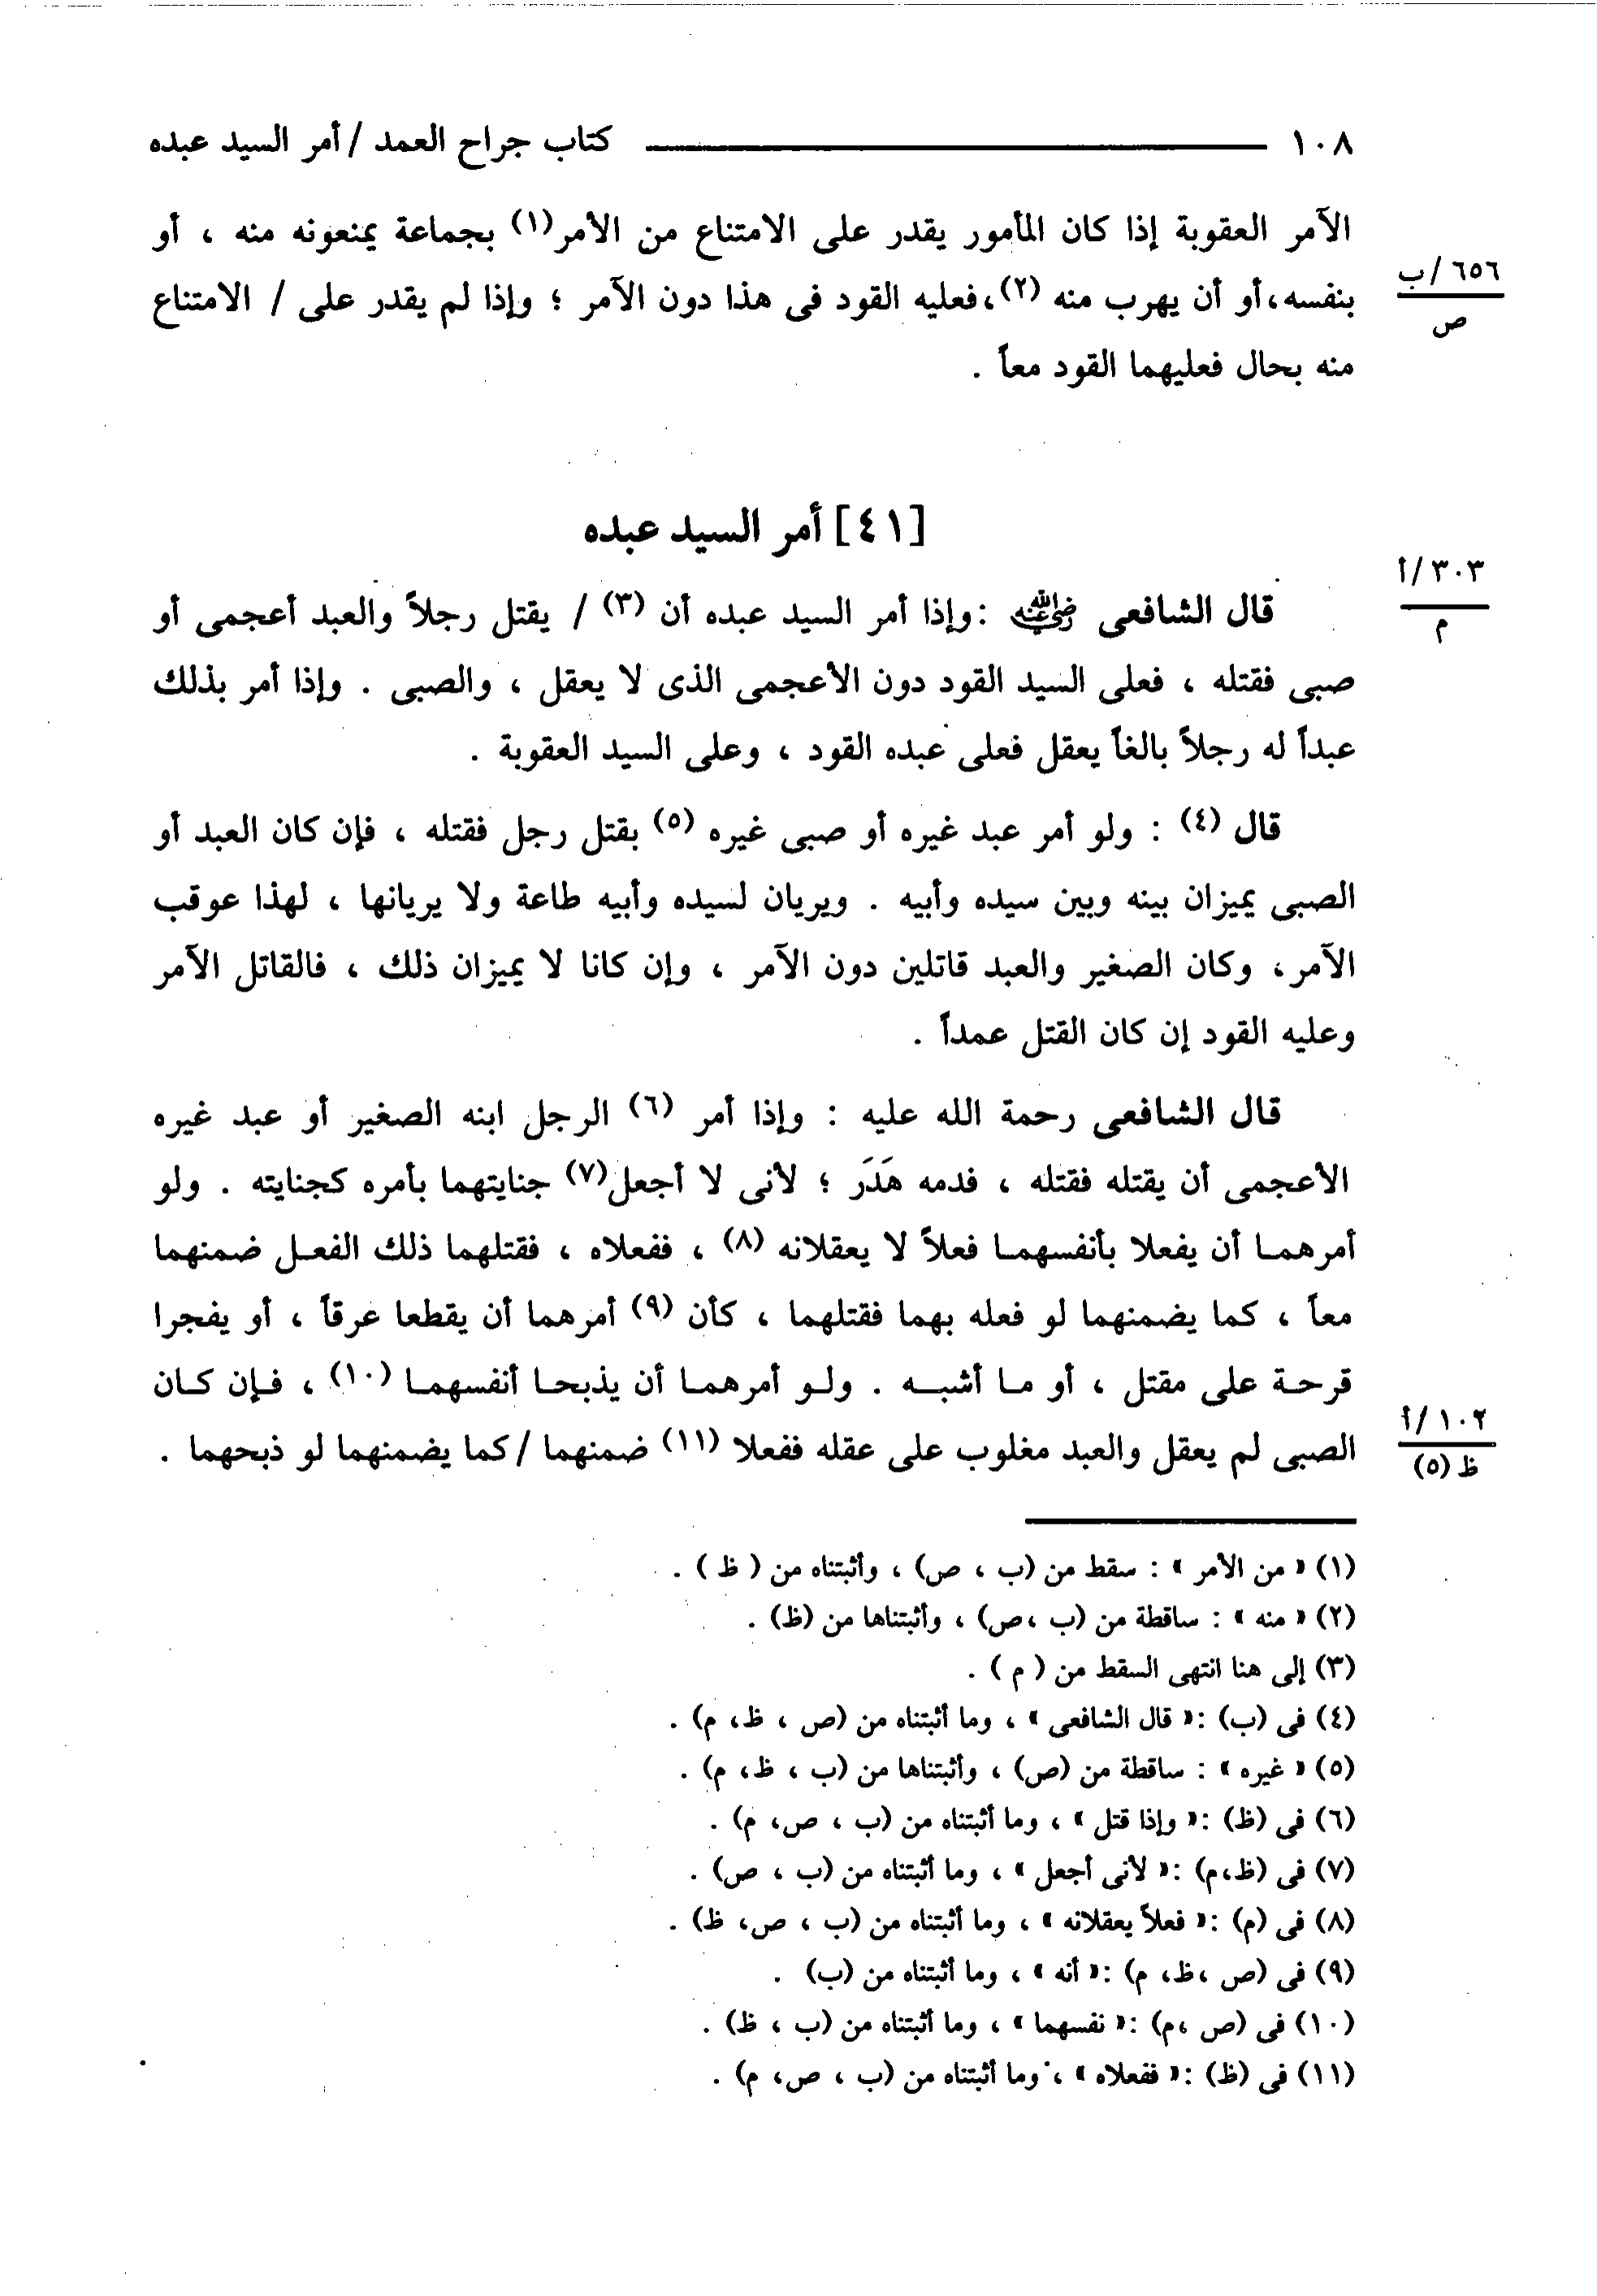 ١٠٨ كتاب جراح العمد / أمر السيد عبده
الآمر العقوبة إذا كان المأمور يقدر على الامتناع من الأمر(١) بجماعة يمنعونه منه ، أو
٦٥٦/ب
ص
بنفسه، أو أن يهرب منه (٢)، فعليه القود فى هذا دون الآمر ؛ وإذا لم يقدر على / الامتناع
منه بحال فعليهما القود معاً .
[٤١] أمر السيد عبده
٣٠٣/أ
م
قال الشافعى رضي الله عنه : وإذا أمر السيد عبده أن (٣) / يقتل رجلاً والعبد أعجمى أو
صبى فقتله ، فعلى السيد القود دون الأعجمى الذى لا يعقل ، والصبى . وإذا أمر بذلك
عبداً له رجلاً بالغاً يعقل فعلى عبده القود ، وعلى السيد العقوبة .
قال (٤) : ولو أمر عبد غيره أو صبى غيره (٥) بقتل رجل فقتله ، فإن كان العبد أو
الصبى يميزان بينه وبين سيده وأبيه . ويريان لسيده وأبيه طاعة ولا يريانها ، لهذا عوقب
الآمر، وكان الصغير والعبد قاتلين دون الآمر ، وإن كانا لا يميزان ذلك ، فالقاتل الآمر
وعليه القود إن كان القتل عمداً .
قال الشافعى رحمة الله عليه : وإذا أمر (٦) الرجل ابنه الصغير أو عبد غيره
الأعجمى أن يقتله فقتله ، فدمه هَدَر ؛ لأنى لا أجعل(٧) جنايتهما بأمره كجنايته . ولو
أمرهما أن يفعلا بأنفسهما فعلاً لا يعقلانه (٨) ، ففعلاه ، فقتلهما ذلك الفعل ضمنهما
معاً ، كما يضمنهما لو فعله بهما فقتلهما ، كأن (٩) أمرهما أن يقطعا عرقاً ، أو يفجرا
قرحة على مقتل ، أو ما أشبه . ولو أمرهما أن يذبحا أنفسهما (١٠) ، فإن كان
١٠٢/أ
ظ (٥)
الصبى لم يعقل والعبد مغلوب على عقله ففعلا (١١) ضمنهما / كما يضمنهما لو ذبحهما .
(١) « من الأمر » : سقط من (ب ، ص) ، وأثبتناه من ( ظ ) .
(٢) « منه » : ساقطة من (ب ،ص) ، وأثبتناها من (ظ) .
(٣) إلى هنا انتهى السقط من ( م ) .
(٤) فى (ب) :« قال الشافعى » ، وما أثبتناه من (ص ، ظ، م) .
(٥) « غيره » : ساقطة من (ص) ، وأثبتناها من (ب ، ظ، م) .
(٦) فى (ظ) :« وإذا قتل » ، وما أثبتناه من (ب ، ص، م) .
(٧) فى (ظ،م) :« لأنى أجعل » ، وما أثبتناه من (ب ، ص) .
(٨) فى (م) :« فعلاً يعقلانه » ، وما أثبتناه من (ب ، ص، ظ) .
(٩) فى (ص ،ظ، م) :« أنه » ، وما أثبتناه من (ب) .
(١٠) فى (ص ،م) :« نفسهما » ، وما أثبتناه من (ب ، ظ) .
(١١) فى (ظ) :« ففعلاه » ، وما أثبتناه من (ب ، ص، م) .